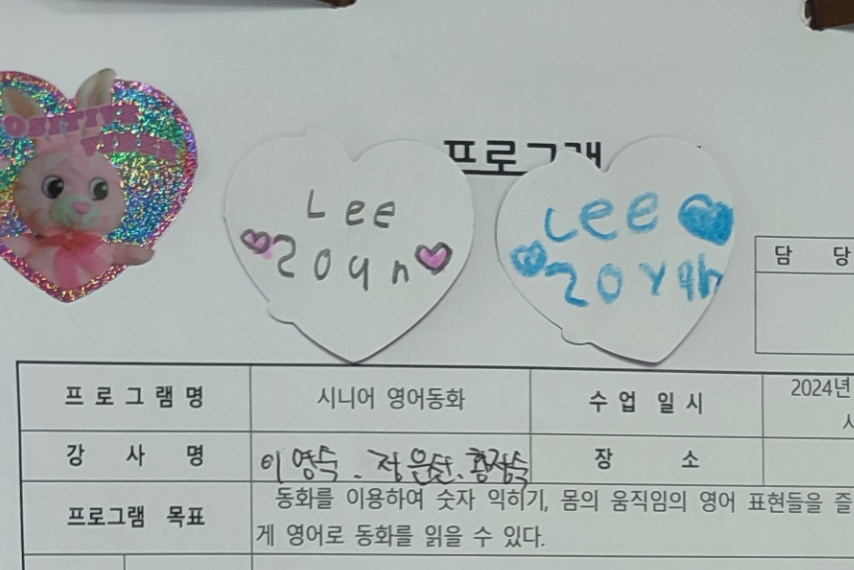 POSITIVE
프로그램
Lee
zoan
Lee
zoyah
담 당
프로그램명
시니어 영어동화
수업 일시
2024년
강 사 명
이영숙 . 정은선 . 홍정숙
장 소
프로그램 목표
동화를 이용하여 숫자 익히기, 몸의 움직임의 영어 표현들을 즐
게 영어로 동화를 읽을 수 있다.